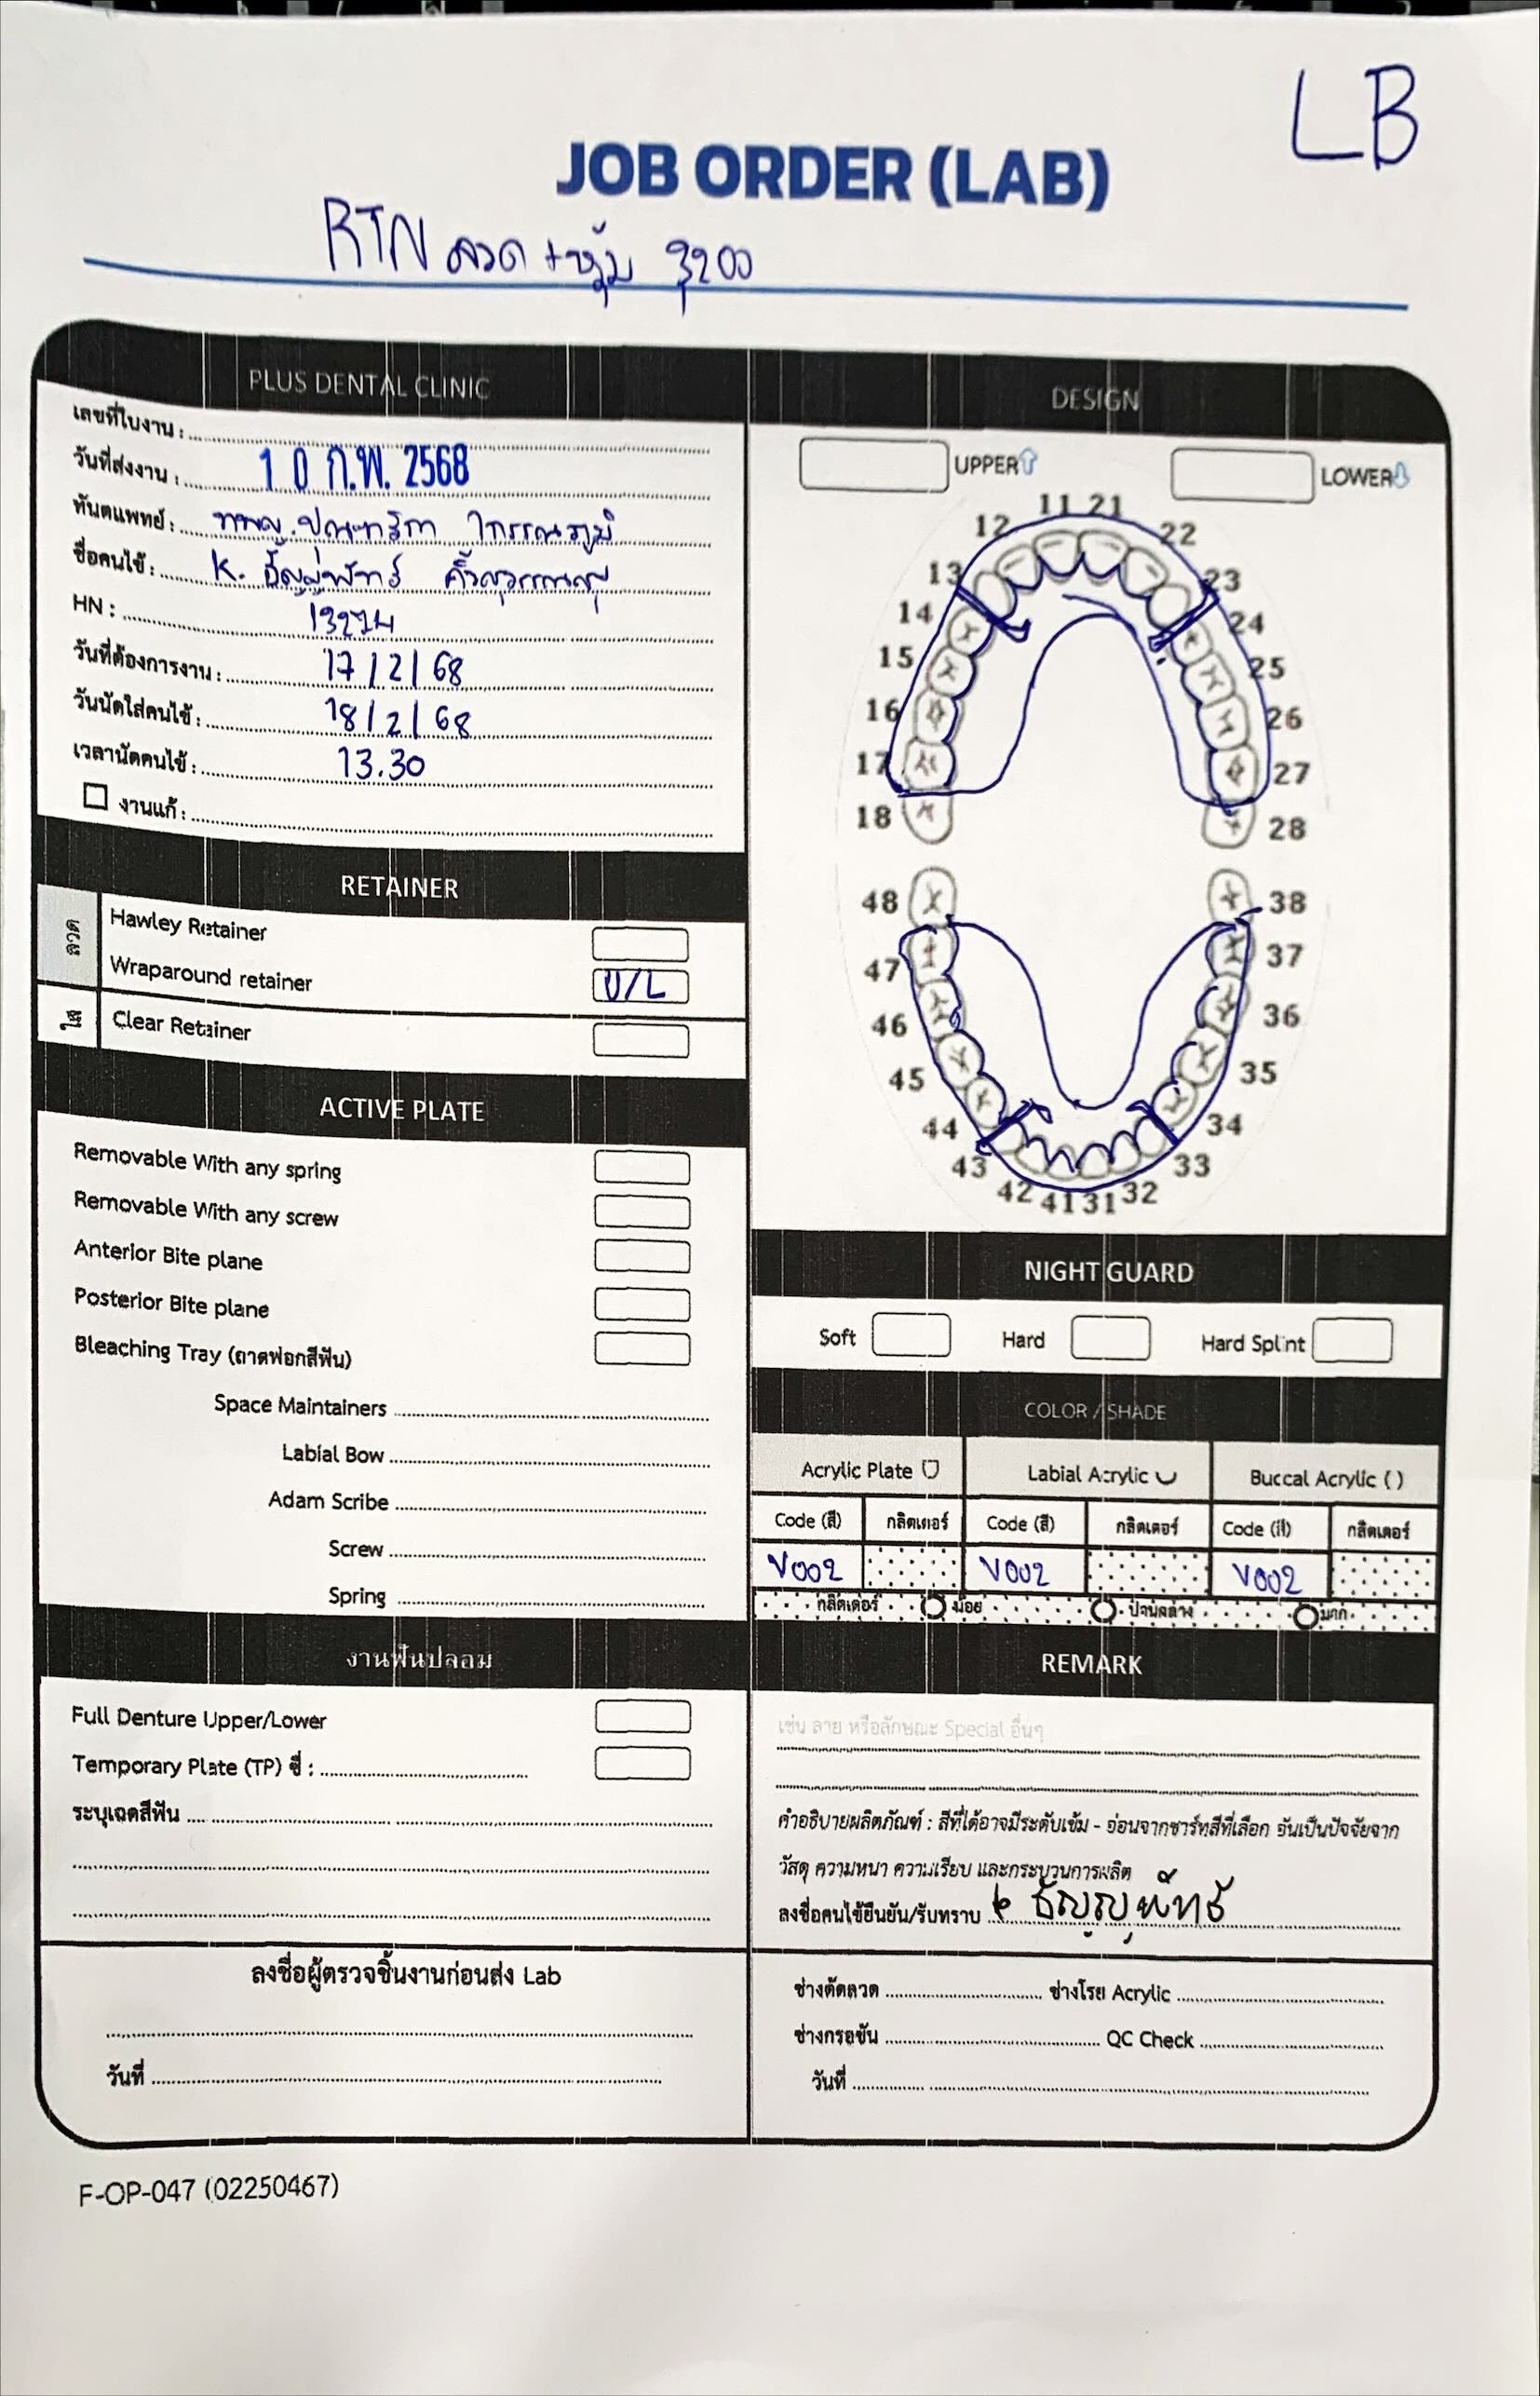 LB
JOB ORDER (LAB)
RTN ลวด + หุ้ม 3200
PLUS DENTAL CLINIC
เลขที่ใบงาน :
วันที่ส่งงาน : 10 ก.พ. 2568
ทันตแพทย์ : ทพญ.
ชื่อคนไข้ : K. ธัญญพัทธ์
HN :
วันที่ต้องการงาน : 17/2/68
วันนัดใส่คนไข้ : 18/2/68
เวลานัดคนไข้ : 13.30
งานแก้ :
RETAINER
ลวด
Hawley Retainer
Wraparound retainer U/L
ใส
Clear Retainer
ACTIVE PLATE
Removable With any spring
Removable With any screw
Anterior Bite plane
Posterior Bite plane
Bleaching Tray (ถาดฟอกสีฟัน)
Space Maintainers
Labial Bow
Adam Scribe
Screw
Spring
งานฟันปลอม
Full Denture Upper/Lower
Temporary Plate (TP) ซี่ :
ระบุเฉดสีฟัน
ลงชื่อผู้ตรวจชิ้นงานก่อนส่ง Lab
วันที่
DESIGN
UPPER LOWER
11 21
12 22
13 23
14 24
15 25
16 26
17 27
18 28
48 38
47 37
46 36
45 35
44 34
43 33
42 41 31 32
NIGHT GUARD
Soft Hard Hard Splint
COLOR / SHADE
Acrylic Plate Labial Acrylic Buccal Acrylic ( )
Code (สี) กลิตเตอร์ Code (สี) กลิตเตอร์ Code (สี) กลิตเตอร์
V002 V002 V002
กลิตเตอร์ น้อย ปานกลาง มาก
REMARK
เช่น ลาย หรือลักษณะ Special อื่นๆ
คำอธิบายผลิตภัณฑ์ : สีที่ได้อาจมีระดับเข้ม - อ่อนจากชาร์ทสีที่เลือก อันเป็นปัจจัยจาก
วัสดุ ความหนา ความเรียบ และกระบวนการผลิต
ลงชื่อคนไข้ยืนยัน/รับทราบ ธัญญพัทธ์
ช่างดัดลวด ช่างโรย Acrylic
ช่างกรอขัน QC Check
วันที่
F-OP-047 (02250467)